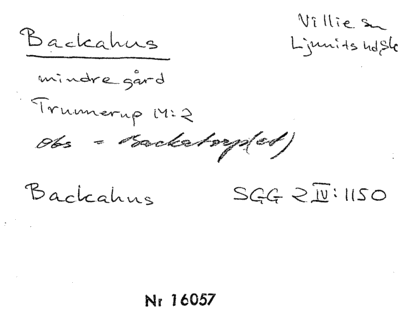 Backahus
Villie sn
Ljunits hd, Sk
mindre gård
Trunnerup M:2
obs = Backatorp(et)
Backahus SGG 2 IV:1150
Nr 16057